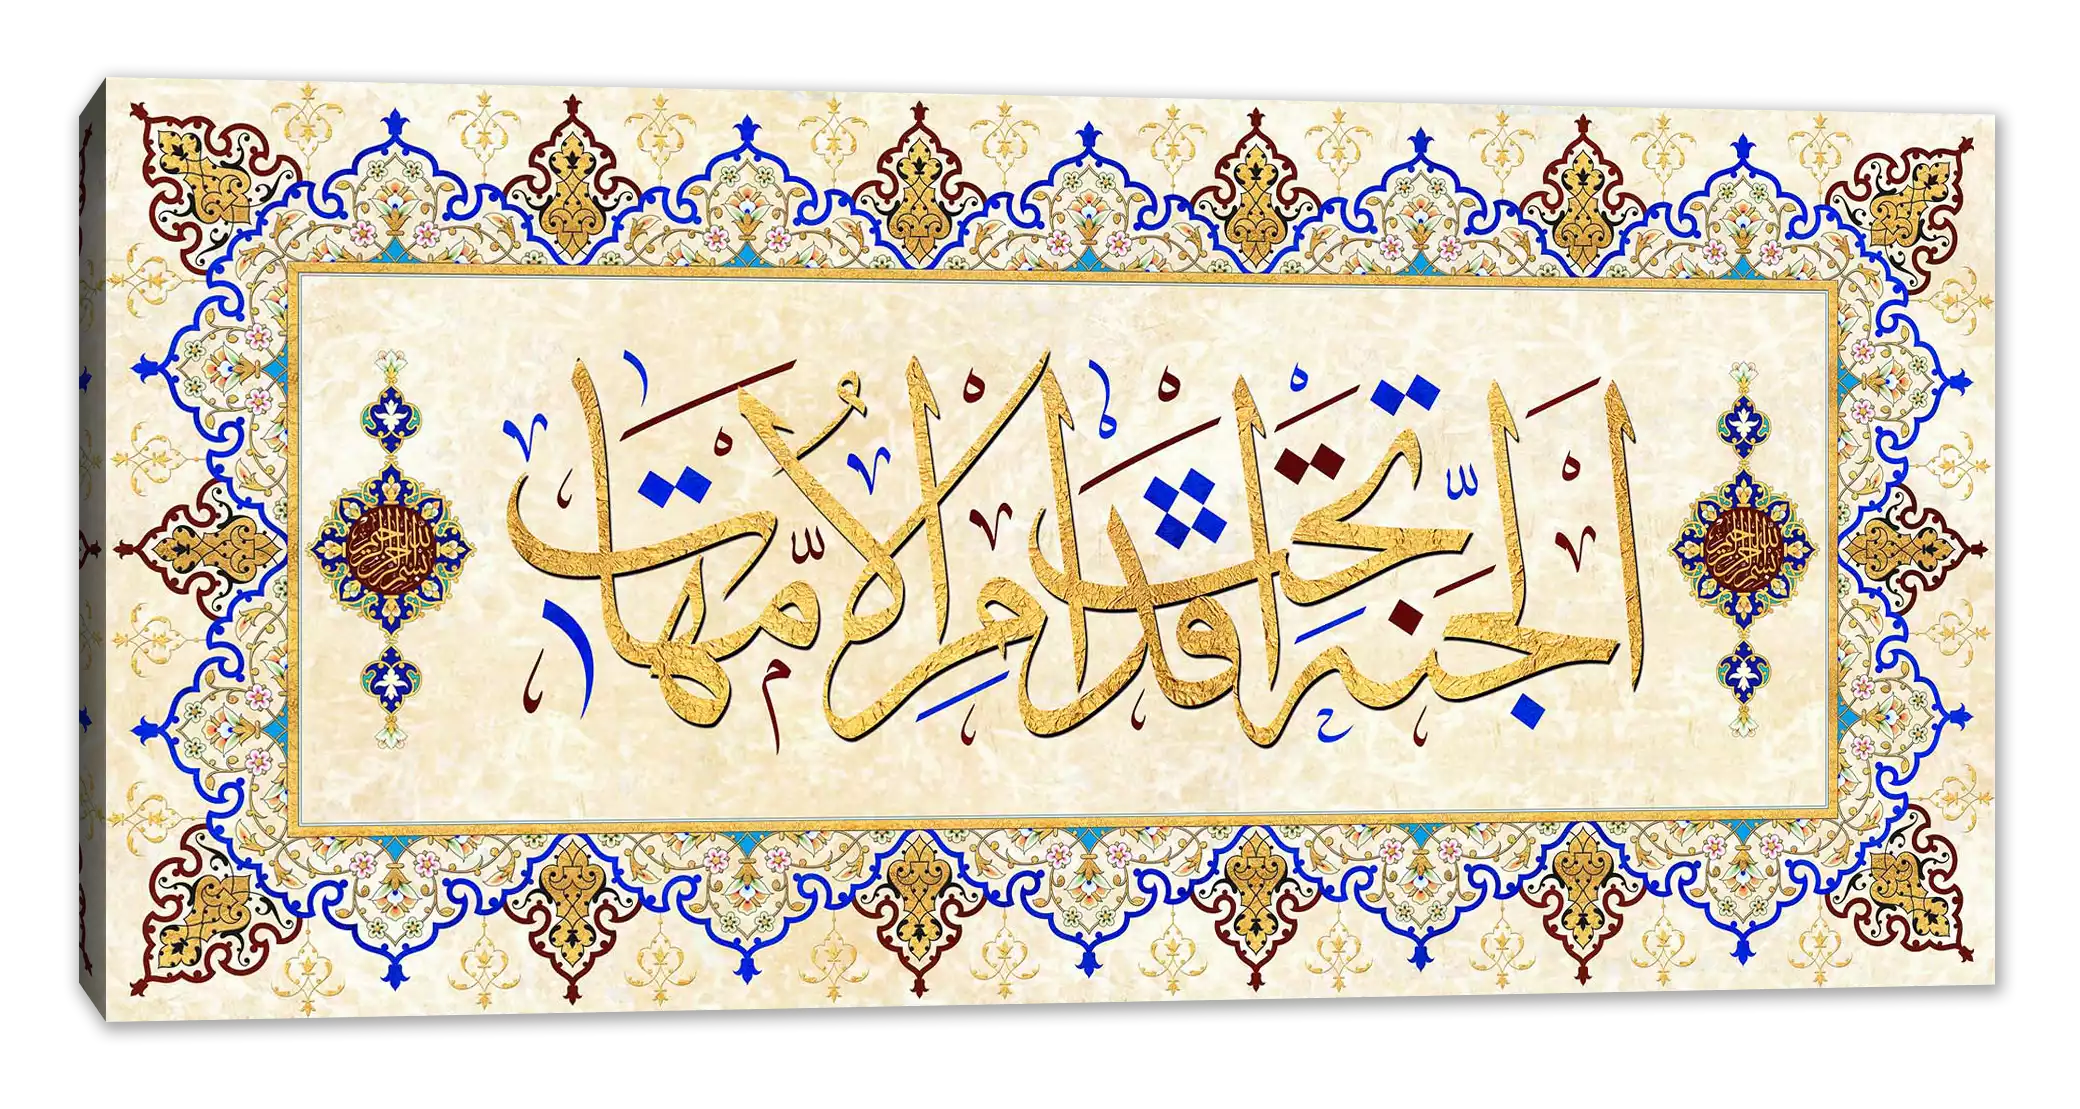 اَلْجَنَّةُ تَحْتَ اَقْدَامِ الْاُمَّهَاتِ
بسم الله الرحمن الرحيم
بسم الله الرحمن الرحيم